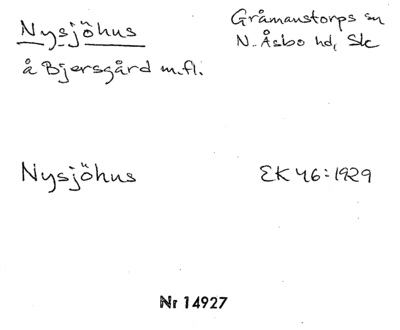 Nysjöhus
Gråmanstorps sn
N. Åsbo hd, Sk
å Bjersgård m.fl.
Nysjöhus
EK 46:1929
Nr 14927